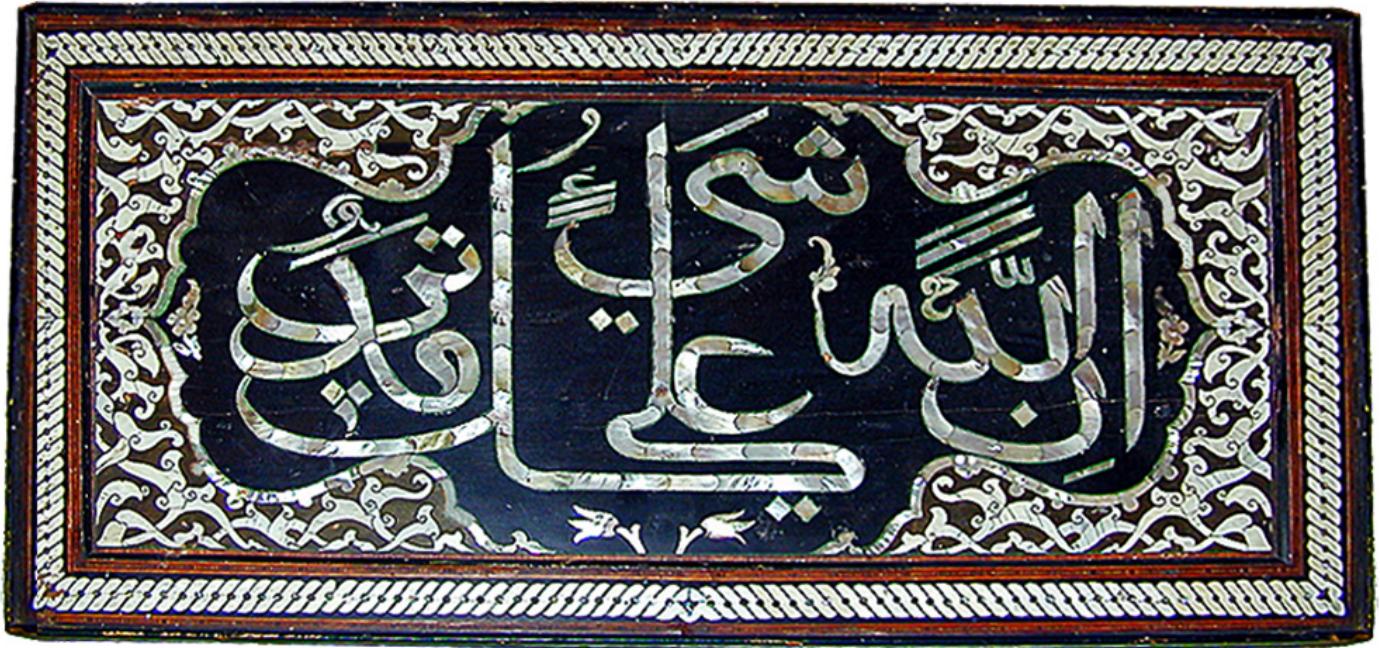 ان الله على كل شيء قدير